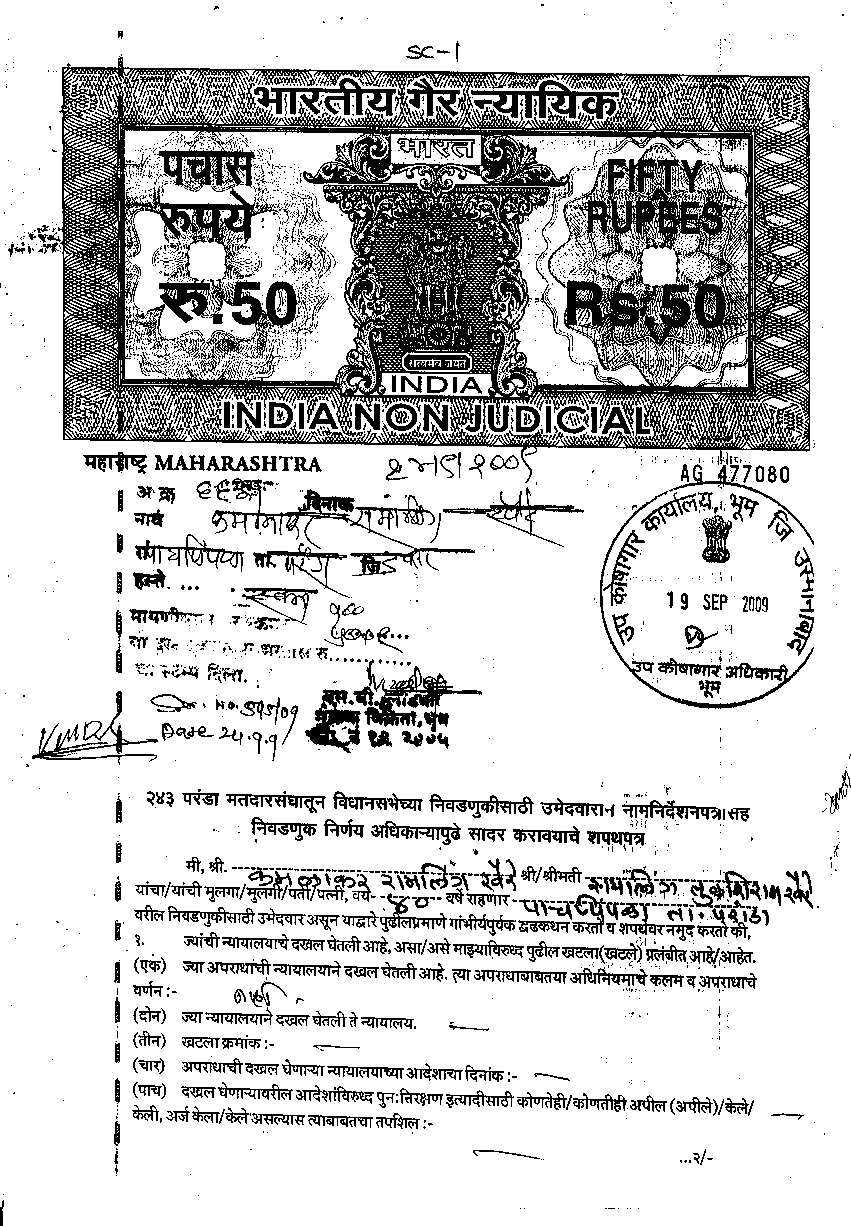 SC-1
भारतीय गैर न्यायिक
भारत
पचास
रुपये
रु.50
FIFTY
RUPEES
Rs.50
सत्यमेव जयते
INDIA
INDIA NON JUDICIAL
महाराष्ट्र MAHARASHTRA
AG 477080
अ.क्र.
दिनांक
नांव
ता. परंडा जि.
हस्ते. ...
रु.
चा स्टॅम्प दिला.
उप कोषागार कार्यालय, भूम जि उस्मानाबाद
19 SEP 2009
उप कोषागार अधिकारी
भूम
No. 595/09
Date 24.9.9
२४३ परंडा मतदारसंघातून विधानसभेच्या निवडणुकीसाठी उमेदवारान नामनिर्देशनपत्रासह
निवडणुक निर्णय अधिकाऱ्यापुढे सादर करावयाचे शपथपत्र
मी, श्री. कमलाकर रामलिंग खैरे श्री/श्रीमती रामलिंग तुळशिराम खैरे
यांचा/यांची मुलगा/मुलगी/पती/पत्नी, वय ४० वर्ष राहणार पाचपिंपळा ता. परांडा
वरील निवडणुकीसाठी उमेदवार असून याद्वारे पुढीलप्रमाणे गांभीर्यपुर्वक द्रढकथन करतो व शपथेवर नमुद करतो की,
१. ज्यांची न्यायालयाचे दखल घेतली आहे, असा/असे माझ्याविरुध्द पुढील खटला(खटले) प्रलंबीत आहे/आहेत.
(एक) ज्या अपराधाची न्यायालयाने दखल घेतली आहे. त्या अपराधाबाबतया अधिनियमाचे कलम व अपराधाचे
वर्णन :- नाही.
(दोन) ज्या न्यायालयाने दखल घेतली ते न्यायालय. —
(तीन) खटला क्रमांक :- —
(चार) अपराधाची दखल घेणाऱ्या न्यायालयाच्या आदेशाचा दिनांक :- —
(पाच) दखल घेणाऱ्यावरील आदेशांविरुध्द पुन:तिरक्षण इत्यादीसाठी कोणतेही/कोणतीही अपील (अपीले)/केले/
केली, अर्ज केला/केले असल्यास त्याबाबतचा तपशिल :- —
...२/-